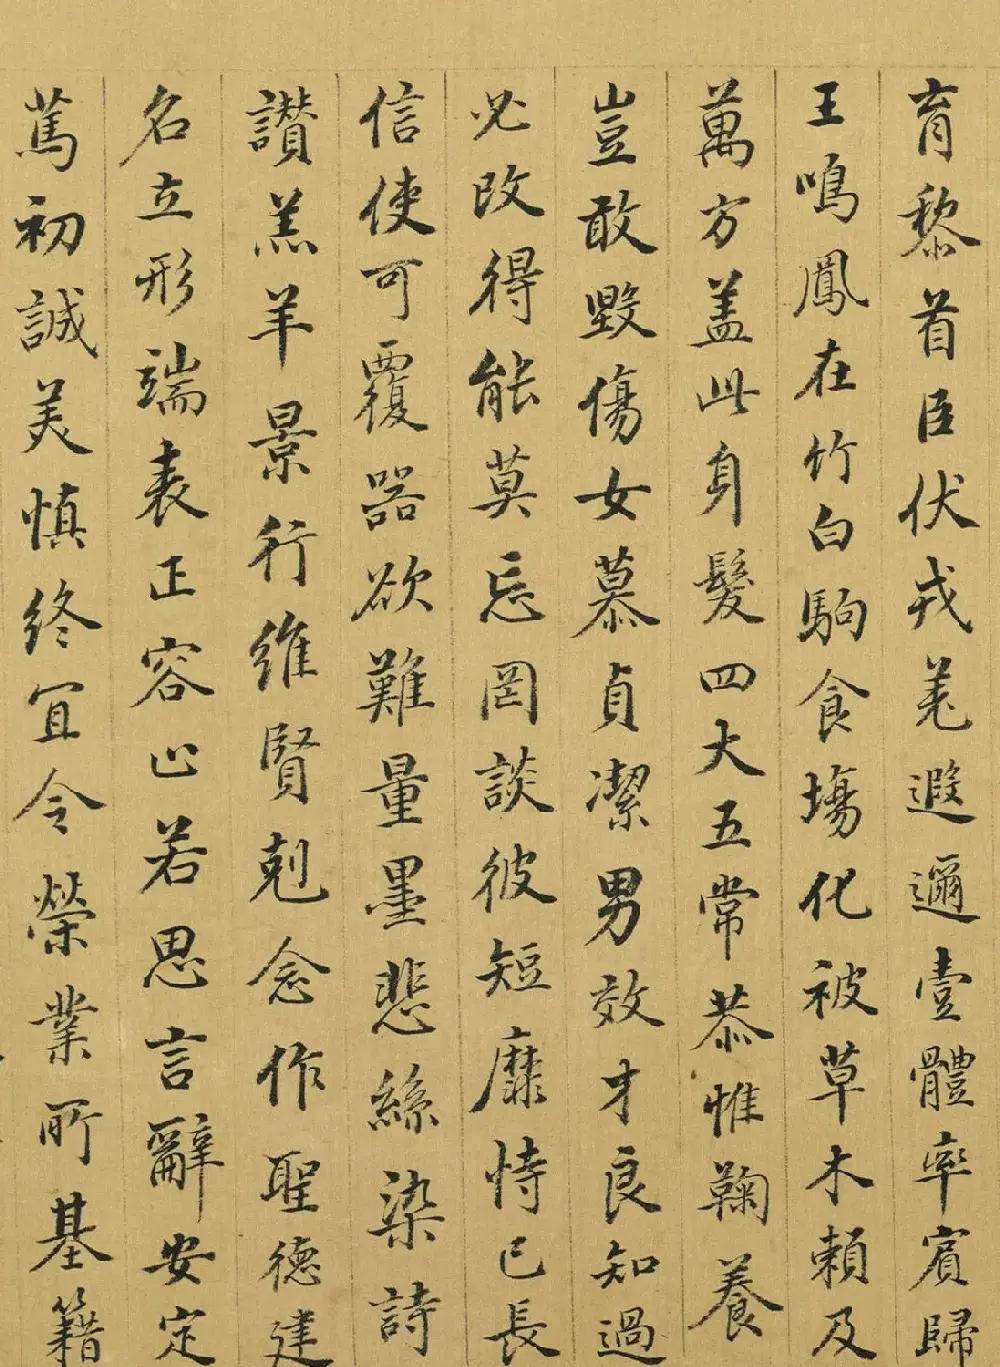 育黎首臣伏戎羌遐邇壹體率賓歸
王鳴鳳在竹白駒食塲化被草木賴及
萬方盖此身髮四大五常恭惟鞠養
豈敢毀傷女慕貞潔男效才良知過
必改得能莫忘罔談彼短靡恃己長
信使可覆器欲難量墨悲絲染詩
讃羔羊景行維賢剋念作聖德建
名立形端表正容止若思言辭安定
篤初誠美慎終宜令榮業所基籍